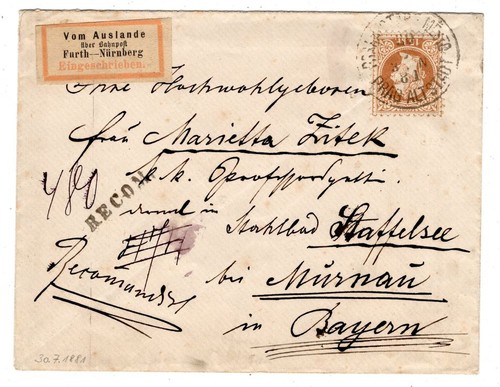 Vom Auslande
über Bahnpost
Furth—Nürnberg
Eingeschrieben.
Ihre Hochwohlgeboren
Frau Marietta Zitek
k.k. Professorsgattin
480
RECOM
derzeit in
Stahlbad Staffelsee
Recomandirt
bei Murnau
in Bayern
30.7.1881